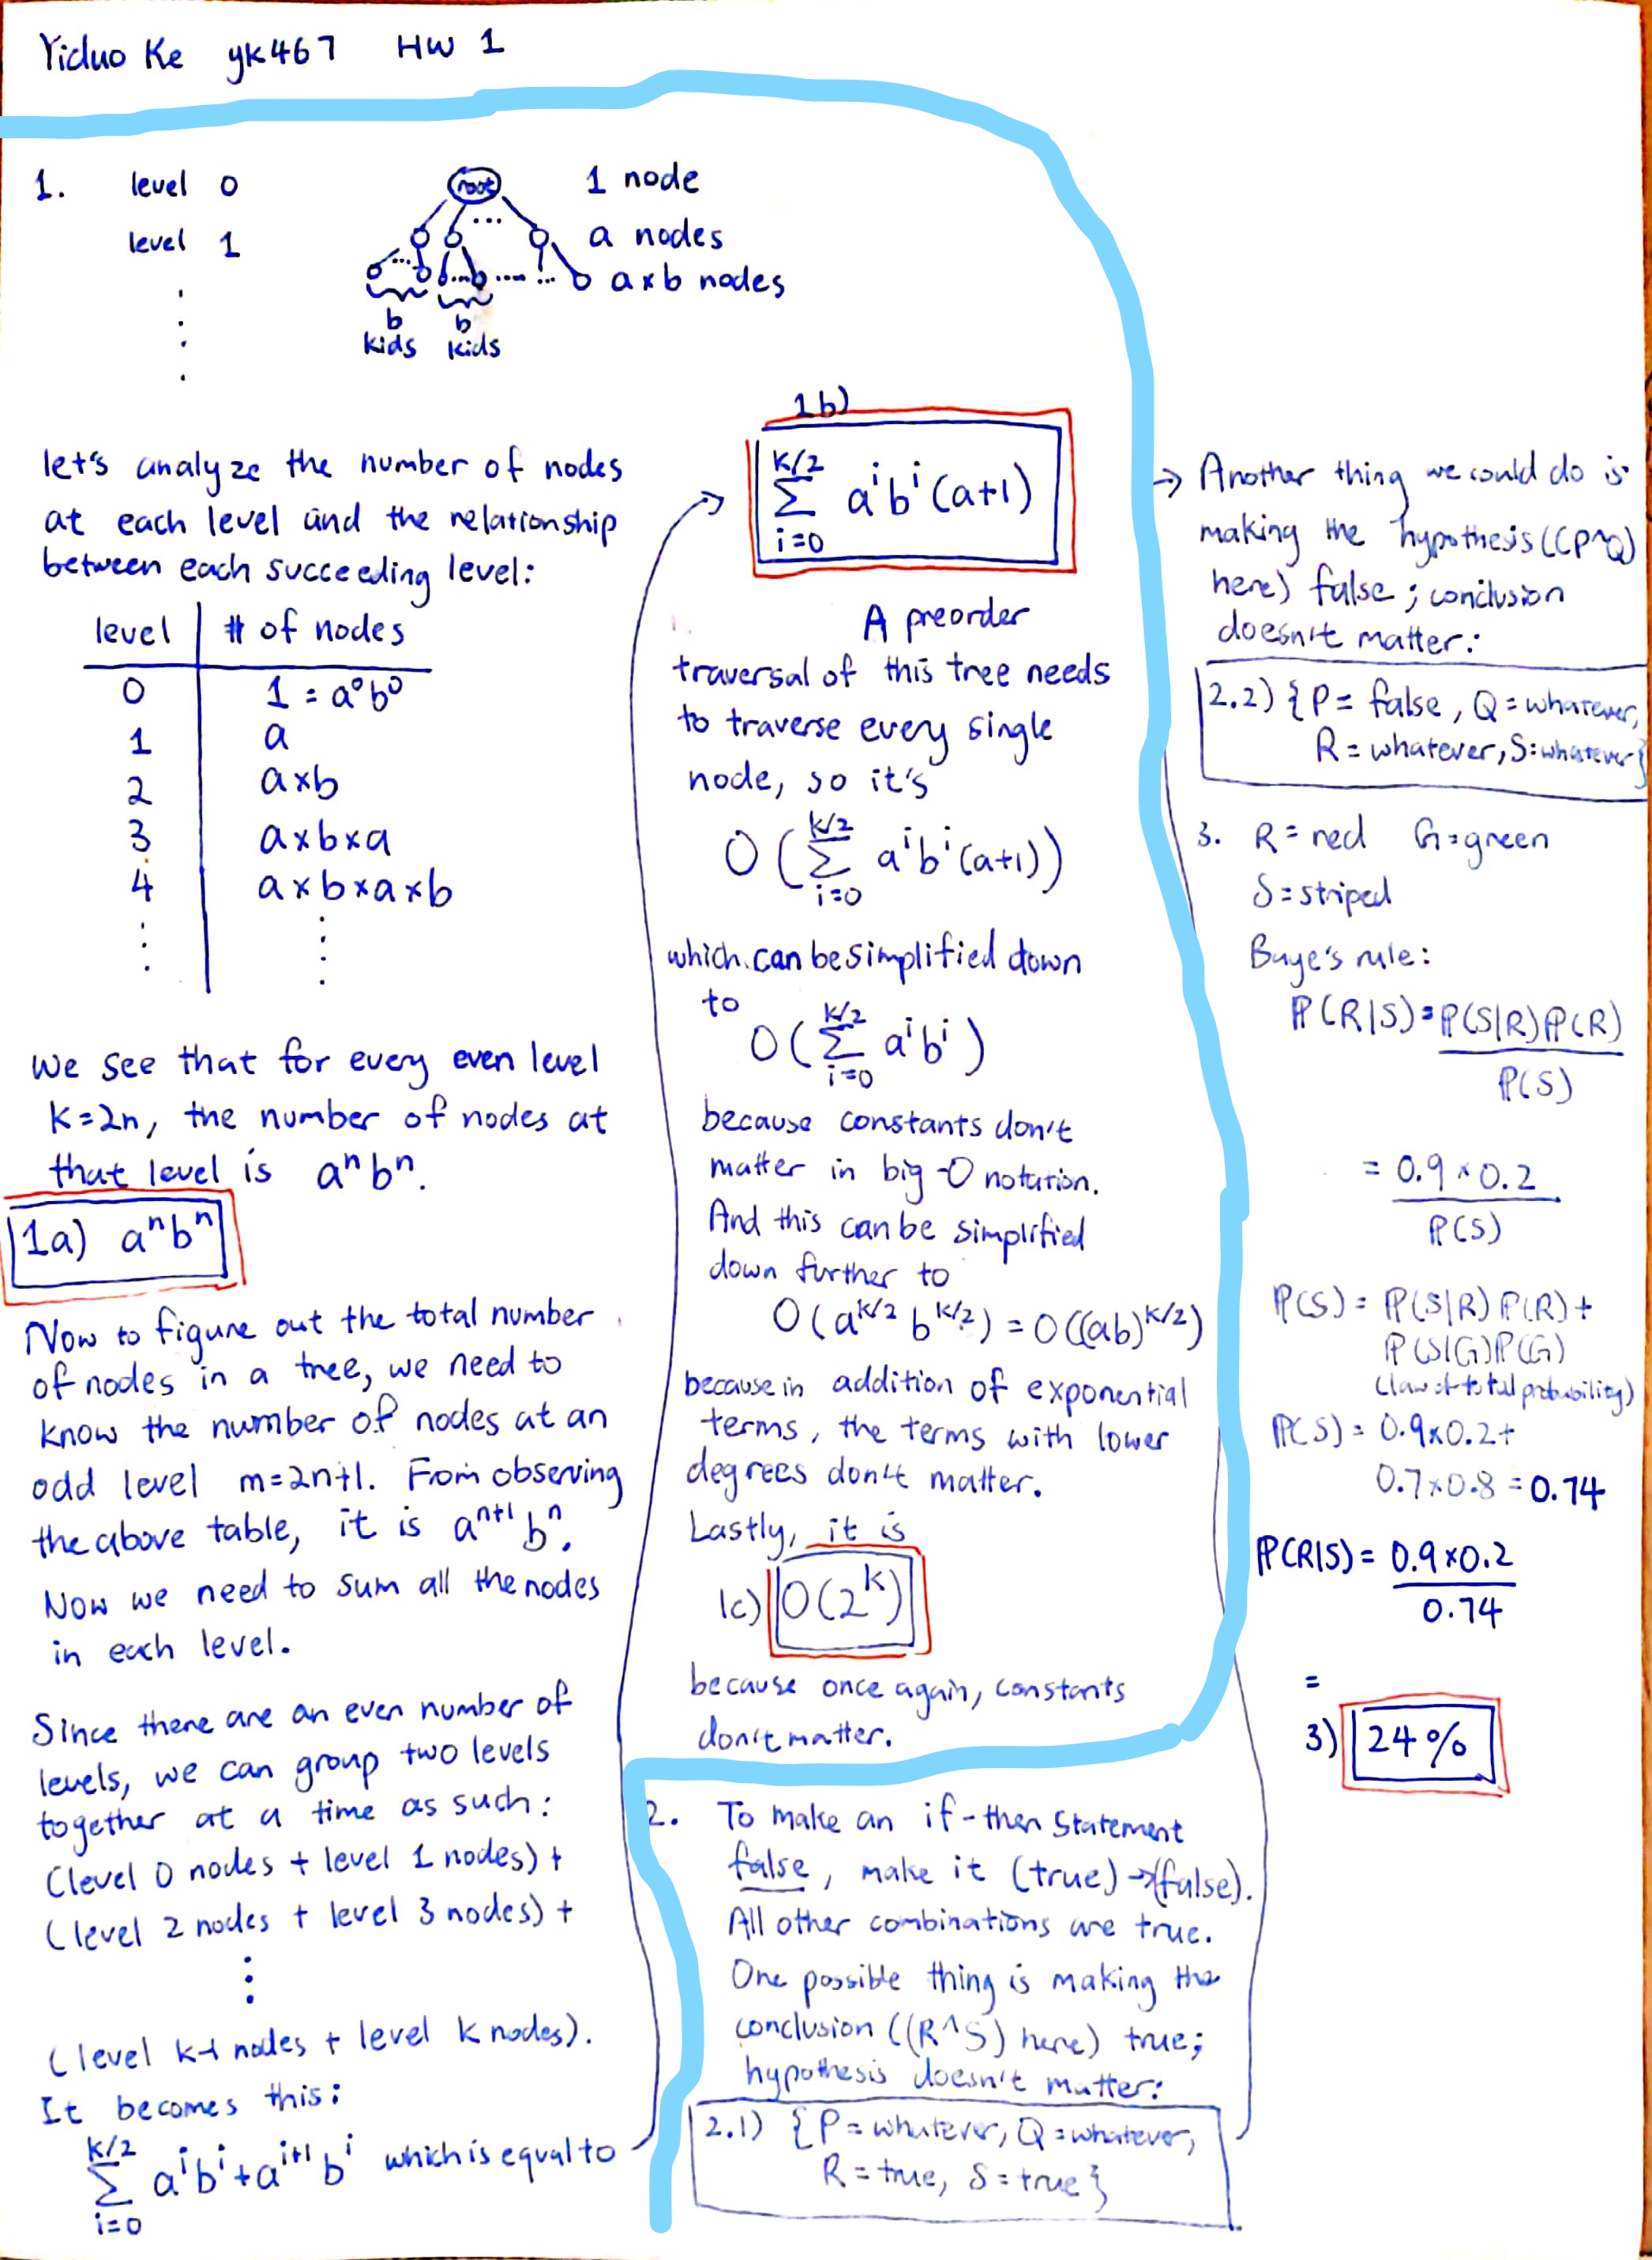 Yiduo Ke yk467 HW 1
1. level 0 root 1 node
level 1 ... a nodes
... ... .... ... a×b nodes
b b
kids kids
let's analyze the number of nodes
at each level and the relationship
between each succeeding level:
level # of nodes
0 1 = a⁰b⁰
1 a
2 a×b
3 a×b×a
4 a×b×a×b
We see that for every even level
k=2n, the number of nodes at
that level is aⁿbⁿ.
1a) aⁿbⁿ
Now to figure out the total number
of nodes in a tree, we need to
know the number of nodes at an
odd level m=2n+1. From observing
the above table, it is aⁿ⁺¹bⁿ.
Now we need to sum all the nodes
in each level.
Since there are an even number of
levels, we can group two levels
together at a time as such:
(level 0 nodes + level 1 nodes) +
(level 2 nodes + level 3 nodes) +
⋮
(level k-1 nodes + level k nodes).
It becomes this:
k/2
Σ aⁱbⁱ+aⁱ⁺¹bⁱ which is equal to
i=0
1b)
k/2
Σ aⁱbⁱ(a+1)
i=0
A preorder
traversal of this tree needs
to traverse every single
node, so it's
k/2
O(Σ aⁱbⁱ(a+1))
i=0
which can be simplified down
to
k/2
O(Σ aⁱbⁱ)
i=0
because constants don't
matter in big-O notation.
And this can be simplified
down further to
O(a^k/2 b^k/2) = O((ab)^k/2)
because in addition of exponential
terms, the terms with lower
degrees don't matter.
Lastly, it is
1c) O(2^k)
because once again, constants
don't matter.
2. To make an if-then statement
false, make it (true)→(false).
All other combinations are true.
One possible thing is making the
conclusion ((R^S) here) true;
hypothesis doesn't matter:
2.1) {P=whatever, Q=whatever,
R=true, S=true}
→ Another thing we could do is
making the hypothesis ((P^Q)
here) false; conclusion
doesn't matter:
2.2) {P= false, Q=whatever,
R=whatever, S=whatever}
3. R=red G=green
S=striped
Baye's rule:
P(R|S)=P(S|R)P(R)
P(S)
= 0.9×0.2
P(S)
P(S) = P(S|R)P(R)+
P(S|G)P(G)
(law of total probability)
P(S) = 0.9×0.2+
0.7×0.8 = 0.74
P(R|S) = 0.9×0.2
0.74
=
3) 24%